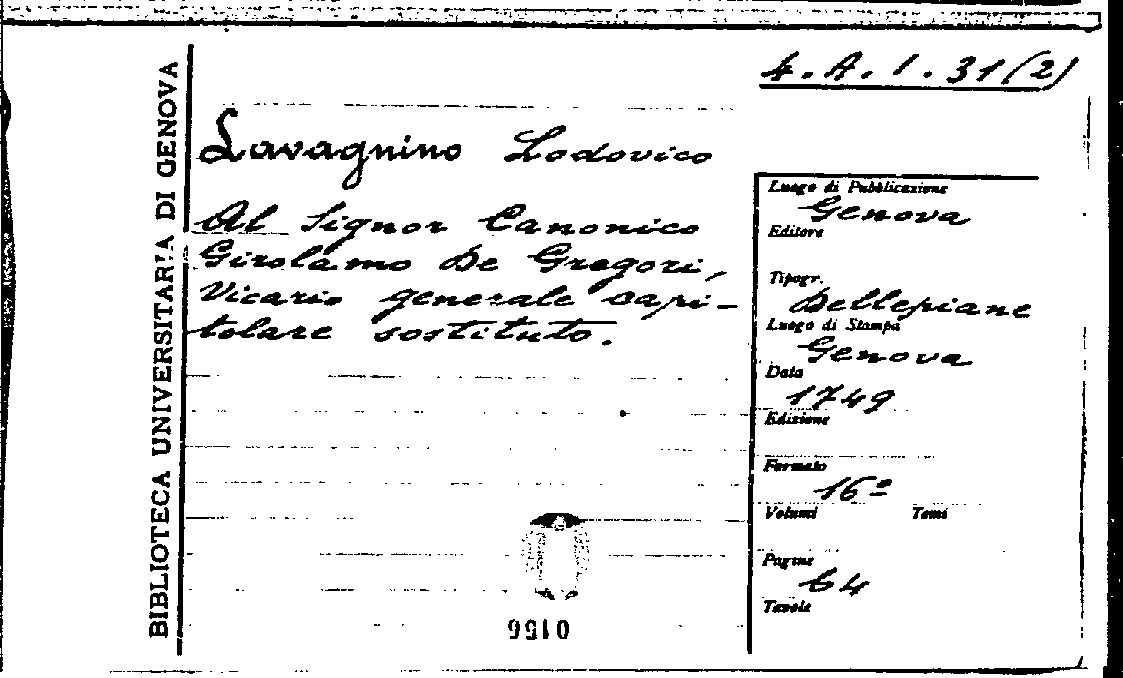 4. A. 1. 31 (2)
BIBLIOTECA UNIVERSITARIA DI GENOVA
Lavagnino Lodovico
Al Signor Canonico
Girolamo De Gregori,
Vicario generale capi-
tolare sostituto.
Luogo di Pubblicazione
Genova
Editore
Tipogr.
Dellepiane
Luogo di Stampa
Genova
Data
1749
Edizione
Formato
16º
Volumi Tomi
Pagine
64
Tavole
0156